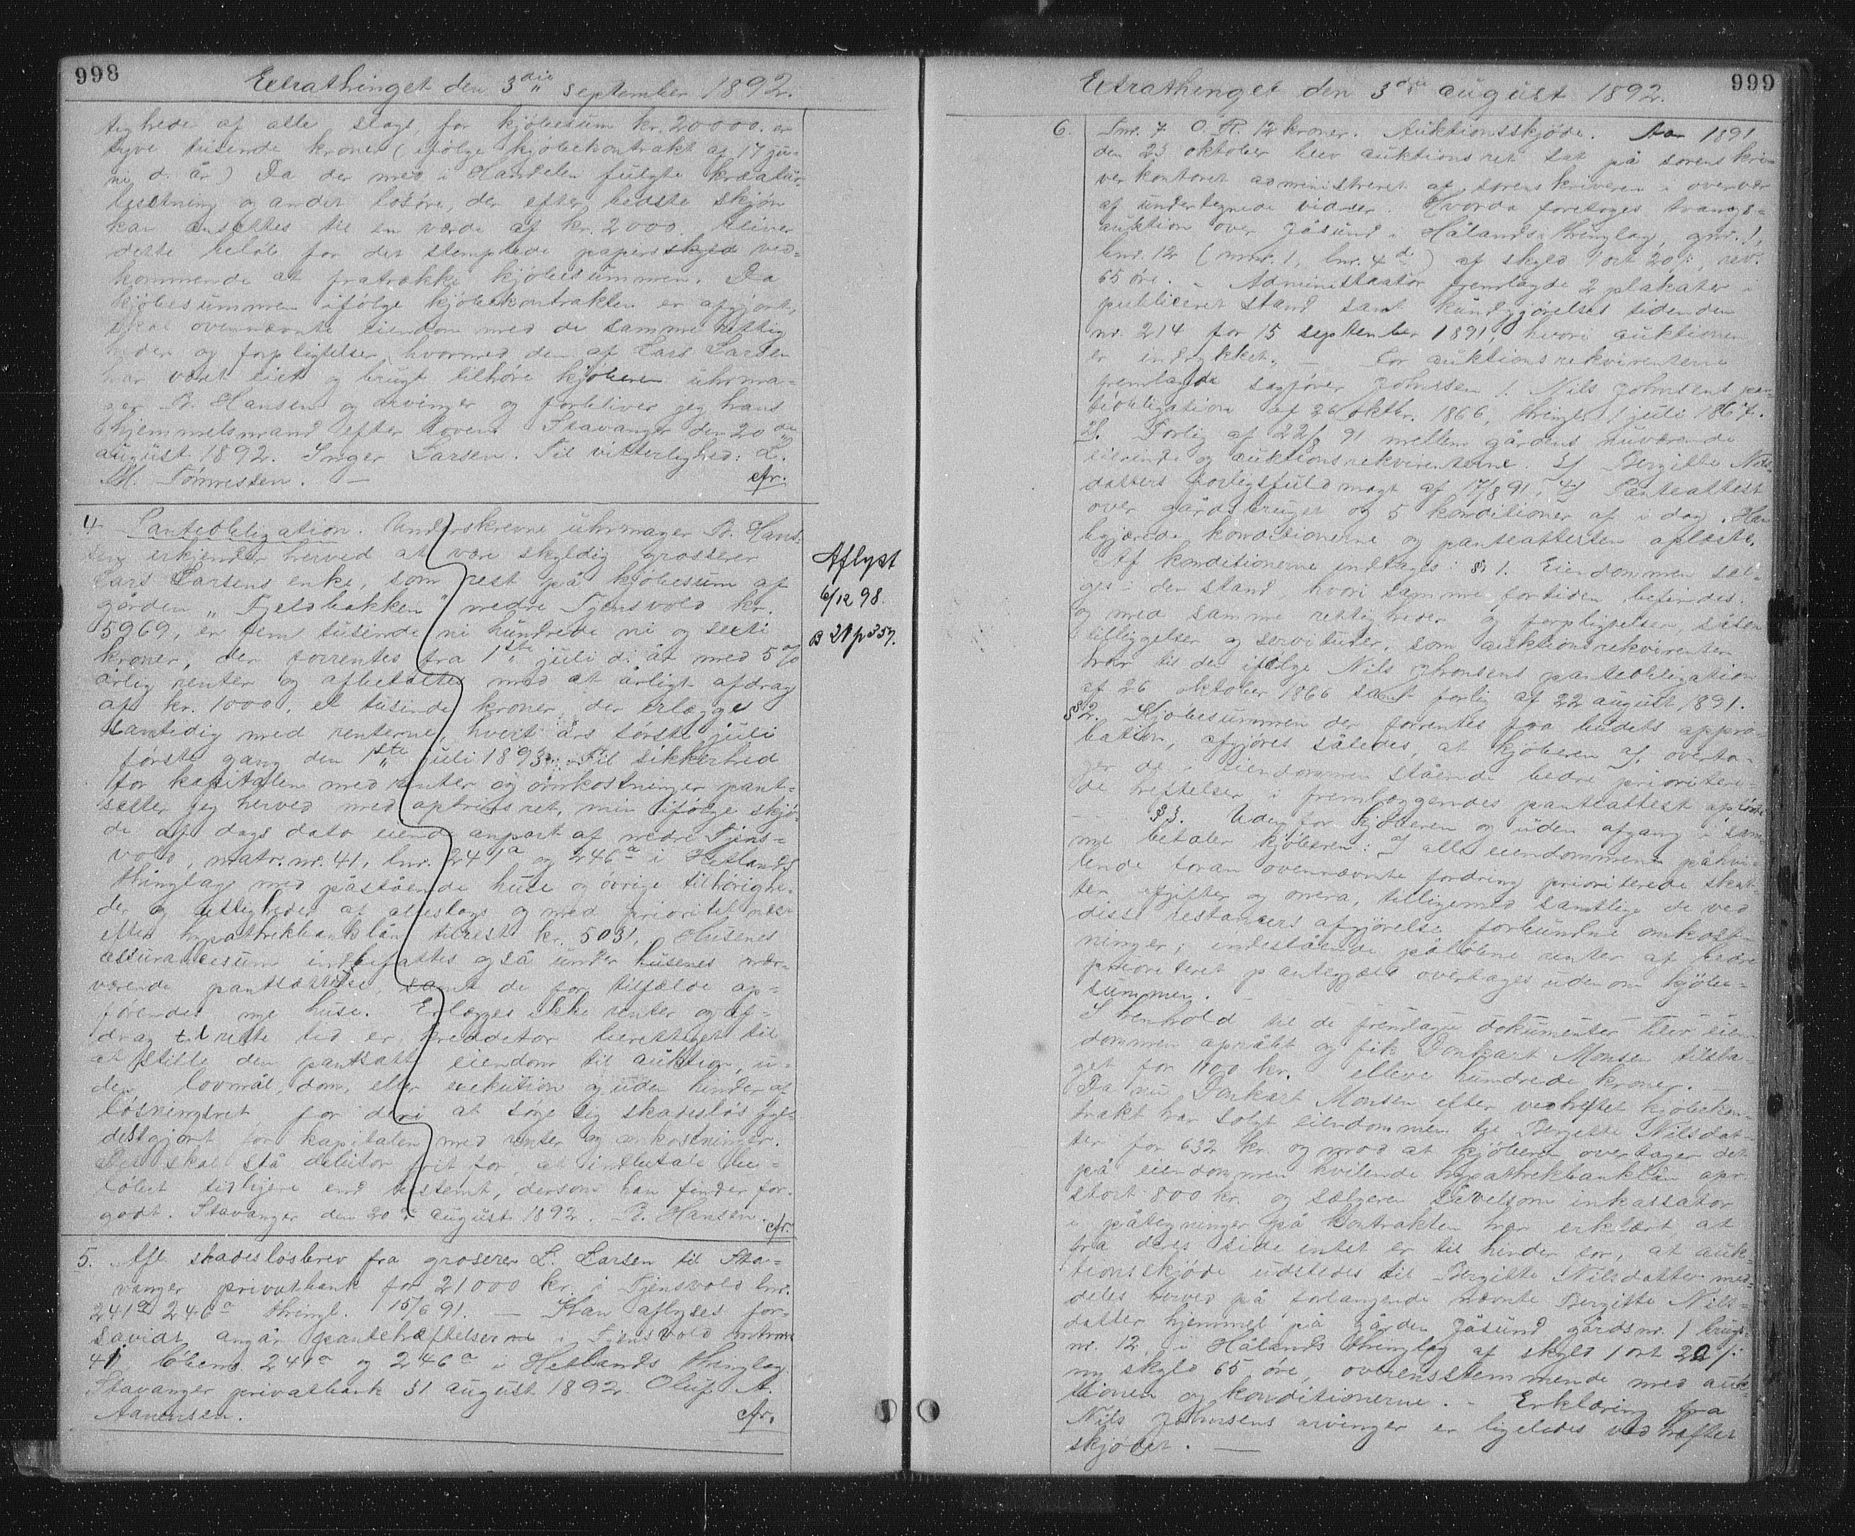 998
Extrathinget den 3die september 1892.
tighede af alle slags, for kjöbesum kr. 20000. er
tyve tusende kroner (ifölge kjöbekontrakt af 17 ju-
ni d. år) Da der med i Handelen fulgte kreatur-
besetning og andet lösöre, der efter bedste skjön
kan ansettes til en værde af kr. 2000, bliver
dette belöb for det stemplede papirs skyld ved-
kommende at fratrække kjöbesummen. Da
kjöbesummen ifölge kjöbekontrakten er afgjort,
skal ovennævnte eiendom med de samme rettig
heder og forpligtelser hvormed den af Lars Larsen
har været eiet og brugt tilhöre kjöberen uhrma-
ger B. Hansen og arvinger og forbliver jeg hans
hjemmelsmand efter loven. Stavanger den 20de
august 1892. Inger Larsen. Til vitterlighed: L.
M. Tönnesen. — cfr.
4. Panteobligation. Underskrevne uhrmager B. Han-
sen erkjender herved at være skyldig grosserer
Lars Larsens enke, som rest på kjöbesum af
gården "Fjeldbakken" nedre Tjensvold kr.
5969, er fem tusinde ni hundrede ni og sexti
kroner, der forrentes fra 1ste juli d. år med 5 %
årlig renter og afbetales med et årligt afdrag
af kr. 1000. et tusinde kroner, der erlægges
samtidig med renterne, hvert års förste juli
förste gang den 1ste juli 1893. Til sikkerhed
for kapitalen med renter og omkostninger pant-
setter jeg herved med aptrinsret, min ifölge skjö-
de af dags dato eiende anpart af nedre Tjens-
vold, matr. nr. 41, lnr. 241a og 246a i Hetlands
thinglag med påstående huse og övrige tilhörighe-
der og herligheder af alleslags og med prioritet næst
efter hypothekbanklån tilrest kr. 5031. Husenes
assurancesum indbefattes også under husenes nær-
værende pantsættelse, samt de for tilfælde op-
förendes nye huse. Erlægges ikke renter og af-
drag til rette tid er kreditor berettiget til
at stille den pantsatte eiendom til auktion, u-
den lovmål, dom, eller exekution og uden hinder af
lösningsret for deri at söge sig skadeslös fyl-
destgjort for kapitalen med renter og omkostninger.
Det skal stå debitor frit for, at indbetale be-
löbet tidligere end bestemt, dersom han finder for-
godt. Stavanger den 20de august 1892. B. Hansen. cfr.
Aflyst
6/12 98.
B 21 p 357.
5. Afl. skadeslösbrev fra grosserer L. Larsen til Sta-
vanger privatbank for 21000 kr. i Tjensvold lnr.
241a 246a thingl. 15/6 91. — Kan aflyses for-
såvidt angår pantehæftelserne i Tjensvold matrnr
41, löbenr 241a og 246a i Hetlands thinglag.
Stavanger privatbank 31 august 1892. Oluf A.
Aanensen. cfr.
Extrathinget den 3die august 1892.
999
6. Lnr. 7 O. R. 12 kroner. Auktionsskjöde. Aar 1891
den 23 oktober blev auktionsret sat på sorenskri-
verkontoret administreret af sorenskriveren i overvær
af undertegnede vidner. Hvorda foretoges tvangs-
auktion over Jåsund i Hålands thinglag, gnr. 1,
bnr. 12 (mnr. 1, lnr. 4d) af skyld 1 ort 20 s, rev.
65 öre. — Administrator fremlagde 2 plakater i
publiceret stand samt kundgjörelses tidenden
nr. 214 for 15 september 1891, hvori auktionen
er indrykket. For auktionsrekvirenterne
fremlagde sagförer Johnsen 1. Nils Johnsens pan-
teobligation af 26 oktbr. 1866, thingl. 1 juli 1867.
2. Forlig af 22/8 91 mellem gårdens nuværende
eierinde og auktionsrekvirenterne. 3/ Bergitte Nils-
datters forligsfuldmagt af 7/8 91. 4/ Panteattest
over gårdsbruget og 5 konditioner af i dag. Han
begjærede konditionerne og panteattesten aflæste.
Af konditionerne indtages: § 1. Eiendommen sæl-
ges i den stand hvori samme for tiden befindes.
og med samme rettigheder og forpligtelser såsom
tilliggelser og servituter, som auktionsrekvirenten
har til den ifölge Nils Johnsens panteobligation
af 26 oktober 1866 samt forlig af 22 august 1891.
§ 2. Kjöbesummen der forrentes fra budets appro-
bation, afgjöres således, at kjöberen 1/ overta-
ger de i eiendommen stående bedre prioritere-
de heftelser i fremlæggendes panteattest opförte
— § 3. Udenfor kjöberen og uden afgang i sam
me betaler kjöberen: 1/ alle eiendommen påhvi-
lende foran ovennævnte fordring prioriterede skat-
ter, afgifter og onera, tilligemed samtlige de ved
disse restancers afgjörelse forbundne omkost-
ninger; indestående pålöbne renter af bedre
prioriteret pantegjæld overtages udenom kjöbe-
summen.
I henhold til de fremlagte dokumenter blev eien
dommen opråbt og fik Donkart Monsen tilsla-
get for 1100 kr. elleve hundrede kroner. —
Da nu Donkart Monsen efter vedheftet kjöbekon-
trakt har solgt eiendommen til Bergitte Nilsdat-
ter for 632 kr. og mod at kjöberen overtager det
på eiendommen hvilende hypothekbanklån opr.
stort 800 kr. og sælgeren såvelsom inkassator
i påtegninger på kontrakten har erklært, at
fra deres side intet er til hinder for, at auk-
tionsskjöde udstedes til Bergitte Nilsdatter med-
deles herved på forlangende nævnte Bergitte Nils-
datter hjemmel på gården Jåsund gårdsnr. 1 brugs-
nr. 12, i Hålands thinglag af skyld 1 ort 20 s.
ny skyld 65 öre, overensstemmende med auk
tionen og konditionerne. — Erklæring fra
Nils Johnsens arvinger er ligeledes vedhæftet
skjödet. —